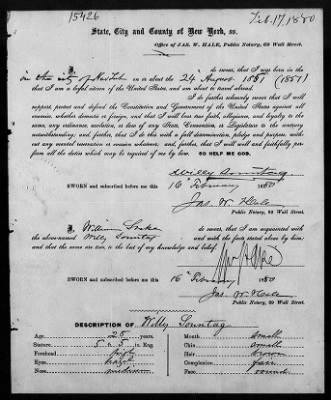 15426
Feb. 17, 1880
State, City and County of New York, ss.
Office of JAS. W. HALE, Public Notary, 69 Wall Street.
do swear, that I was born in the
in the city of New York in or about the 24th August 1851 (1851)
that I am a legal citizen of the United States, and am about to travel abroad.
I do further solemnly swear that I will
support, protect and defend the Constitution and Government of the United States against all
enemies, whether domestic or foreign, and that I will bear true faith, allegiance, and loyalty to the
same, any ordinance, resolution, or law of any State, Convention, or Legislature to the contrary
notwithstanding; and further, that I do this with a full determination, pledge and purpose, with-
out any mental reservation or evasion whatsoever; and, further, that I will well and faithfully per-
form all the duties which may be required of me by law. SO HELP ME GOD.
Willy Sountag
SWORN and subscribed before me this
16 February 1880
Jas. W. Hale
Public Notary, 69 Wall Street.
I, William do swear, that I am acquainted with
the above-named Willy Sountag and with the facts stated above by him; and
that the same are true, to the best of my knowledge and belief.
SWORN and subscribed before me this
16 February 1880
Jas. W. Hale
Public Notary, 69 Wall Street.
DESCRIPTION OF Willy Sountag
Age, 28 years.
Stature, 5 ft 5 in. Eng.
Forehead high
Eyes hazel
Nose medium
Mouth small
Chin small
Hair brown
Complexion fair
Face round